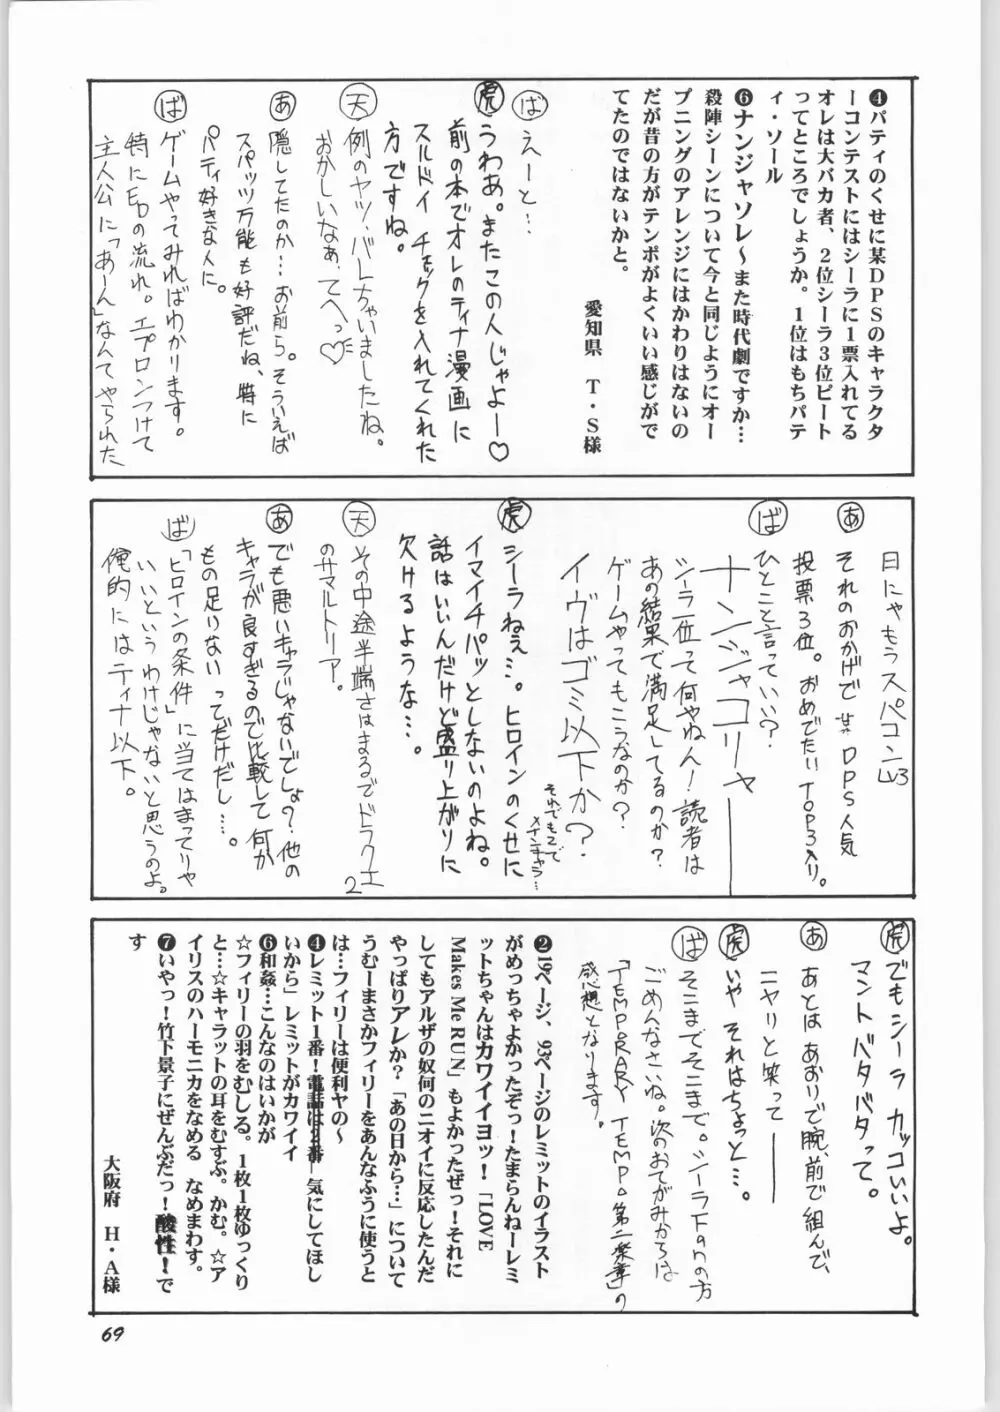 ❹パティのくせに某DPSのキャラクタ
ーコンテストにはシーラに1票入れてる
オレは大バカ者、2位シーラ3位ピート
ってところでしょうか。1位はもちパテ
ィ・ソール
❻ナンジャソレ～また時代劇ですか…
殺陣シーンについて今と同じようにオー
プニングのアレンジにはかわりはないの
だが昔の方がテンポがよくいい感じがで
てたのではないかと。
愛知県 T・S様
ば えーと…
虎 うわあ。またこの人じゃよー♡
前の本でオレのティナ漫画に
スルドイチェックを入れてくれた
方ですね。
天 例のヤツ、バレちゃいましたね。
おかしいなぁ、てへっ♡
あ 隠してたのか…お前ら。そういえば
スパッツ万能も好評だね、特に
パティ好きな人に。
ば ゲームやってみればわかります。
特にEDの流れ。エプロンつけて
主人公に「あーん」なんてやられた
日にゃもうスパコンLV3
あ それのおかげで某DPS人気
投票3位。おめでたいTOP3入り。
ば ひとこと言っていい？
ナンジャコリャー
シーラ一位って何やねん！読者は
あの結果で満足してるのか？
ゲームやってもこうなのか？
イヴはゴミ以下か？
それでもってメインキャラ…
虎 シーラねぇ…。ヒロインのくせに
イマイチパッとしないのよね。
話はいいんだけど盛り上がりに
欠けるような…。
天 その中途半端さはまるでドラクエ2
のサマルトリア。
あ でも悪いキャラじゃないでしょ？他の
キャラが良すぎるので比較して何か
もの足りないってだけだし…。
ば 「ヒロインの条件」に当てはまってりゃ
いいというわけじゃないと思うのよ。
俺的にはティナ以下。
虎 でもシーラカッコいいよ。
マントバタバタって。
あ あとはあおりで腕、前で組んで、
ニヤリと笑って――
虎 いやそれはちょっと…。
ば そこまでそこまで。シーラFanの方
ごめんなさいね。次のおてがみからは
「TEMPORARY TEMPO第二楽章」の
感想となります。
❷19ページ、93ページのレミットのイラスト
がめっちゃよかったぞっ！たまらんねーレミ
ットちゃんはカワイイヨッ！「LOVE
Makes Me RUN」もよかったぜっ！それに
してもアルザの奴何のニオイに反応したんだ
やっぱりアレか？「あの日から…」について
うむーまさかフィリーをあんなふうに使うと
は…フィリーは便利ヤの～
❹レミット1番！電話は2番―気にしてほし
いから」レミットがカワイイ
❻和姦…こんなのはいかが
☆フィリーの羽をむしる。1枚1枚ゆっくり
と…☆キャラットの耳をむすぶ。かむ。☆ア
イリスのハーモニカをなめる なめまわす。
❼いやっ！竹下景子にぜんぶだっ！酸性！で
す
大阪府 H・A様
69